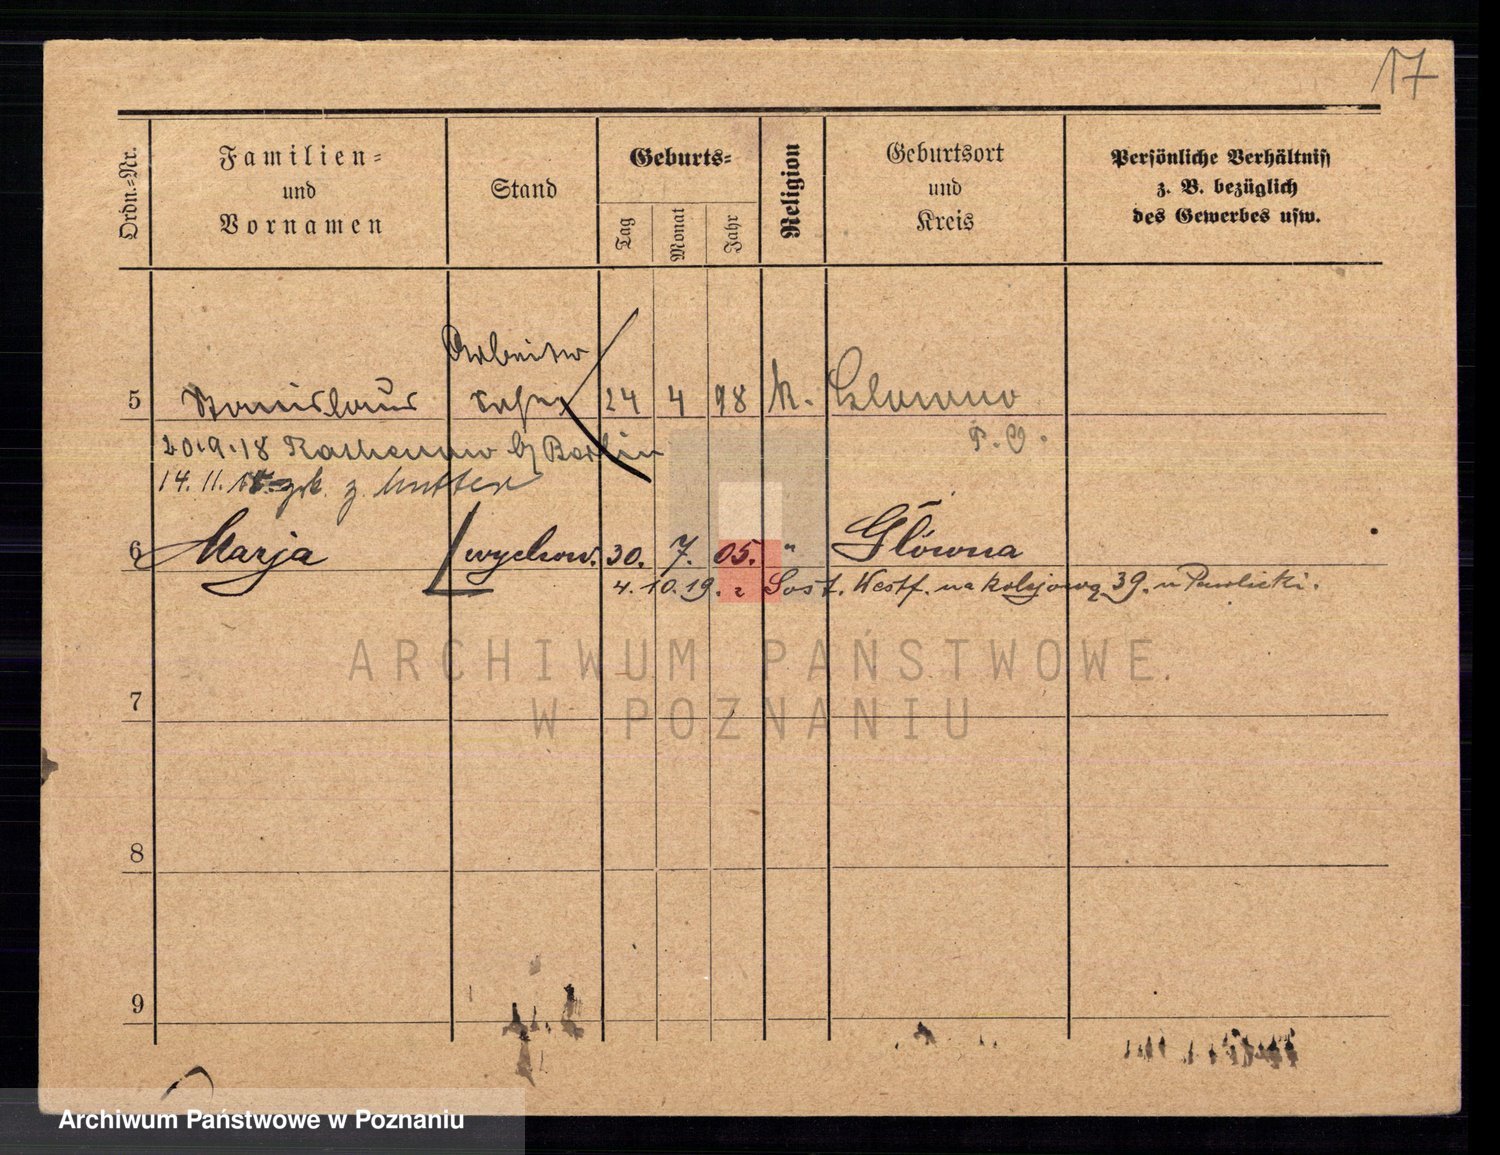 17
Ordn.=Nr.
Familien=
und
Vornamen
Stand
Geburts=
Tag
Monat
Jahr
Religion
Geburtsort
und
Kreis
Persönliche Verhältniss
z. B. bezüglich
des Gewerbes usw.
Arbeiter
5 Stanislaus 24 4 98 k. Glowno
P. O.
20.9.18 Rathenow b/ Berlin
14. 11. 18. zrk. z. Mutter
6 Marja wychow. 30. 7. 05. " Główna
4. 10. 19. z Sost. Westf. na kolejową 39. u Pawlicki.
7
8
9
ARCHIWUM PAŃSTWOWE
W POZNANIU
Archiwum Państwowe w Poznaniu